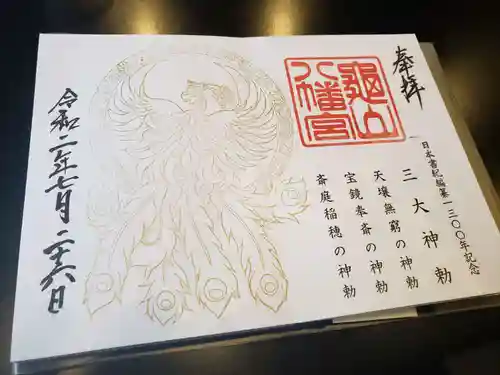 奉拝
日本書紀編纂一三〇〇年記念
三大神勅
天壌無窮の神勅
宝鏡奉斎の神勅
斎庭稲穂の神勅
亀山
八幡宮
令和二年七月二十六日